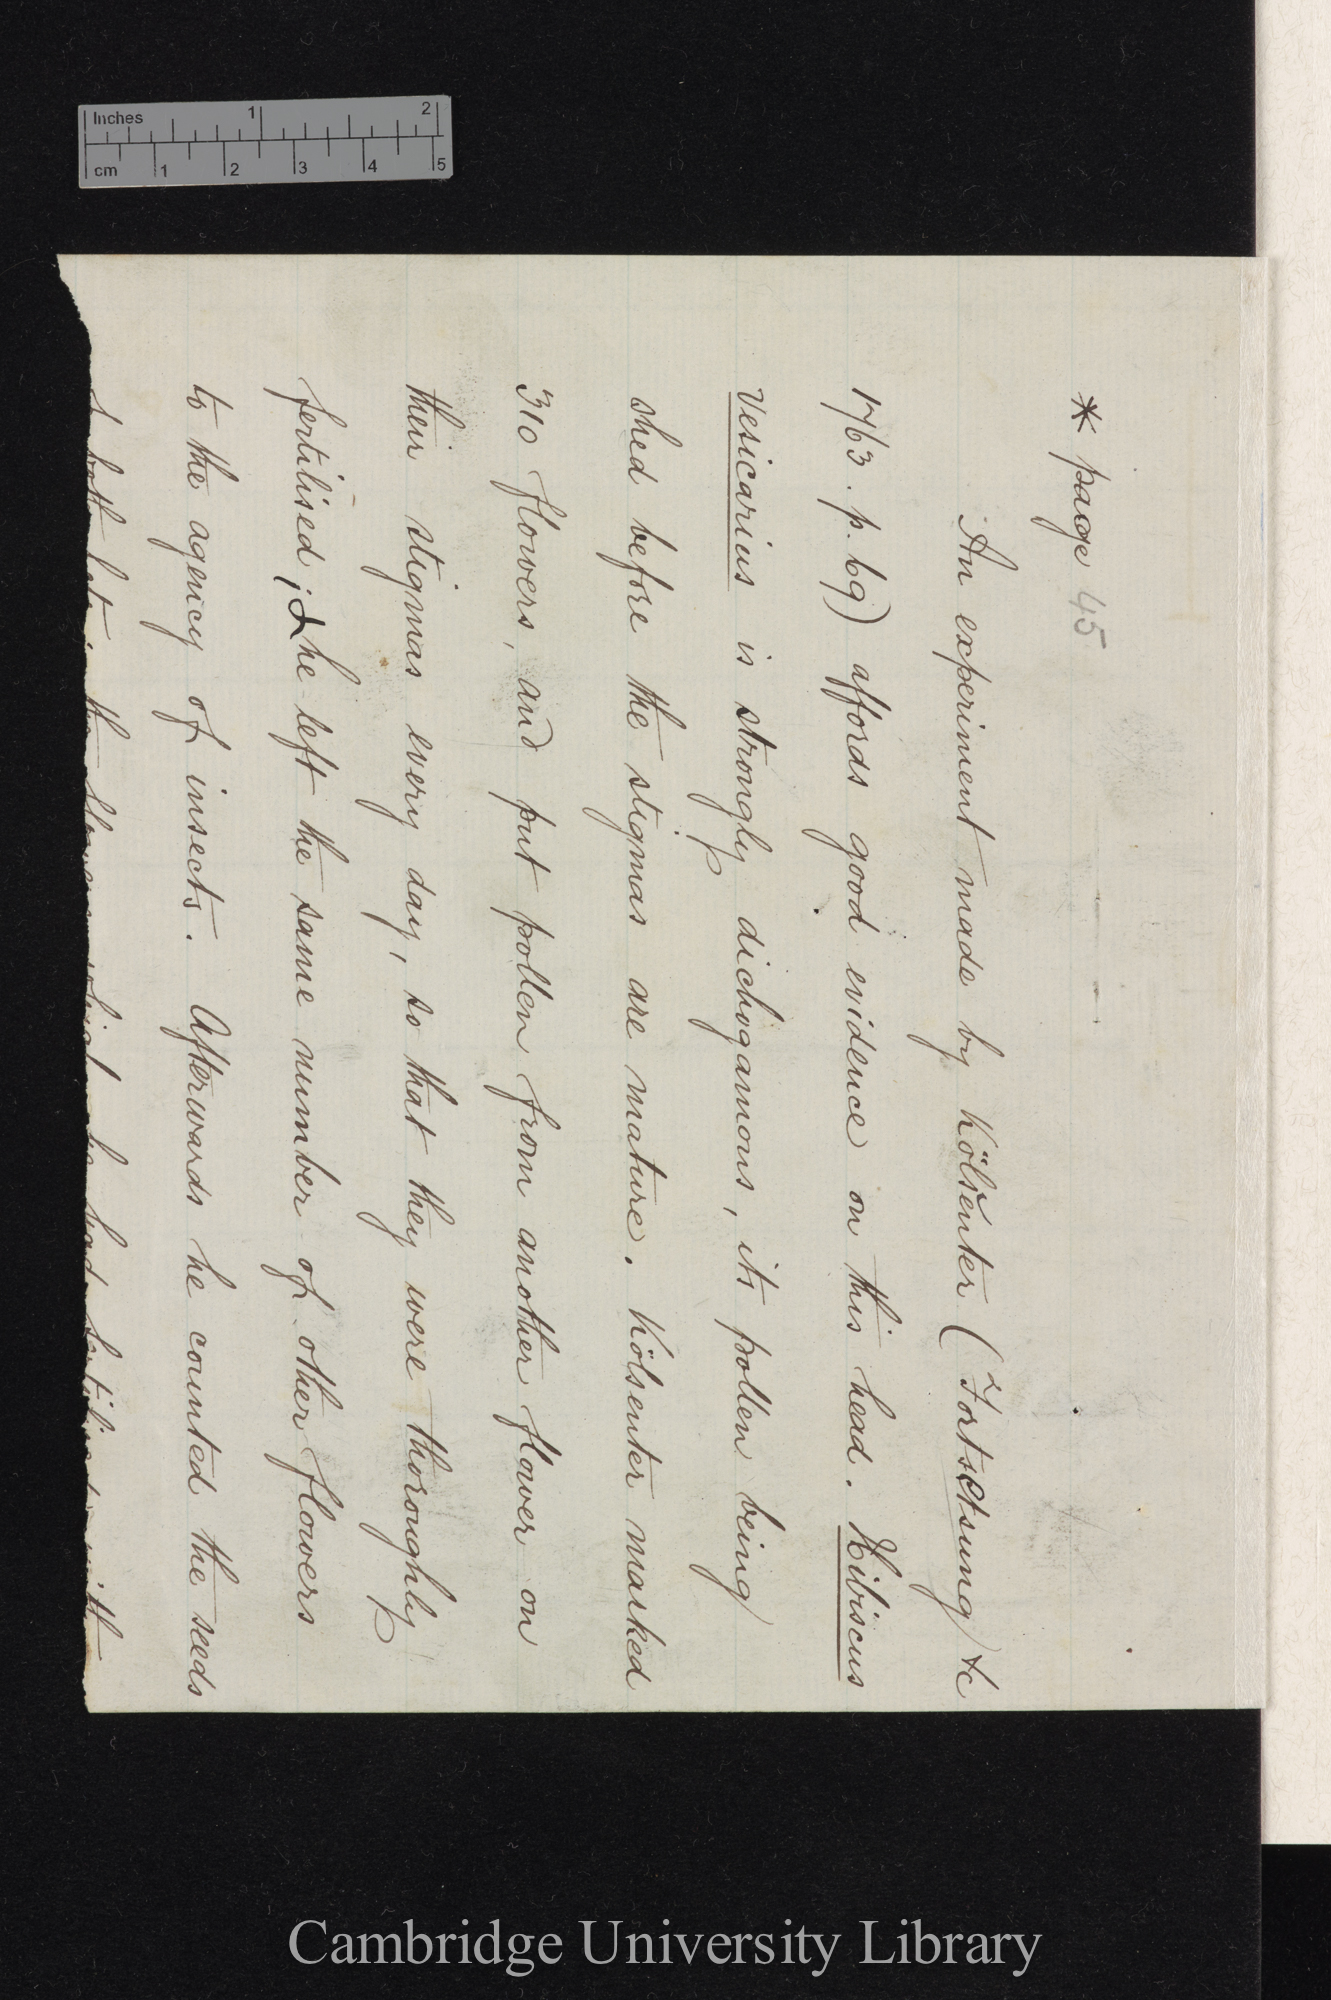 Inches 1 2
cm 1 2 3 4 5
* page 45
An experiment made by Kölsenter (Fortsetsung &c
1763. p. 69) affords good evidence on this head. Hibiscus
Vesicarius is strongly dichogamous, its pollen being
shed before the stigmas are mature. Kölsenter marked
310 flowers, and put pollen from another flower on
their stigmas every day, so that they were thoroughly
fertilised; & he left the same number of other flowers
to the agency of insects. Afterwards he counted the seeds
of both lots: the flowers which he had fertilised with
Cambridge University Library